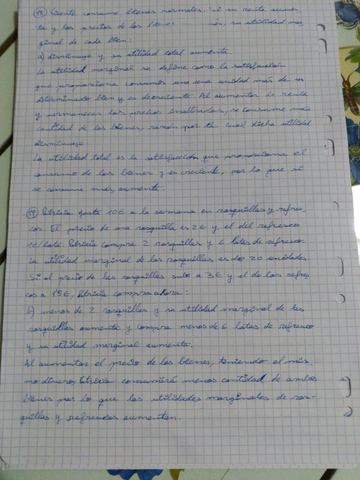 Benito consume bienes normales. Si su renta aumen-
ta y los precios de los bienes su utilidad mar-
ginal de cada bien:
a) disminuye y su utilidad total aumenta.
La utilidad marginal se define como la satisfacción
que proporciona consumir una unidad más de un
determinado bien y es decreciente. Al aumentar la renta
y permanecer los precios inalterados, se consume más
cantidad de los bienes, razón por la cual dicha utilidad
disminuye.
La utilidad total es la satisfacción que proporciona el
consumo de los bienes y es creciente, por lo que si
se consume más, aumenta.
Patricia gasta 10€ a la semana en rosquillas y refres-
cos. El precio de una rosquilla es 2€ y el del refresco
1€/lata. Patricia compra 2 rosquillas y 6 latas de refresco.
La utilidad marginal de las rosquillas es de 20 unidades.
Si el precio de las rosquillas sube a 3€ y el de los refres-
cos a 1'5€, Patricia comprará ahora:
menos de 2 rosquillas y su utilidad marginal de las
rosquillas aumenta y compra menos de 6 latas de refresco
y su utilidad marginal aumenta.
Al aumentar el precio de los bienes, teniendo el mis-
mo dinero, Patricia consumirá menos cantidad de ambos
bienes por lo que las utilidades marginales de ros-
quillas y refrescos aumentan.